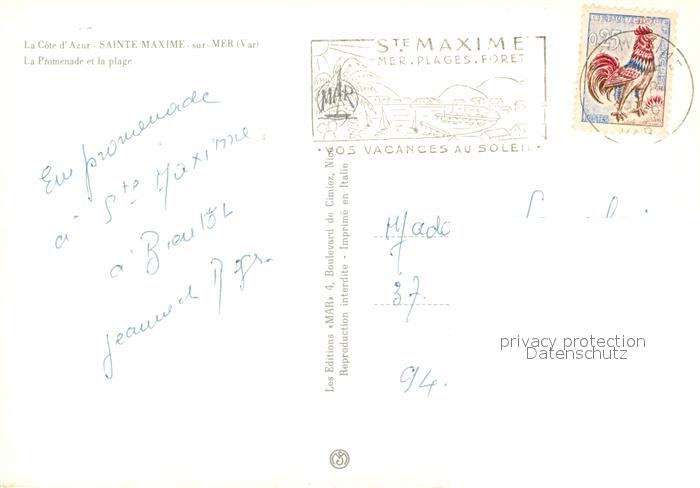 La Côte d'Azur - SAINTE MAXIME - sur-MER (Var)
La Promenade et la plage
STE MAXIME
MER. PLAGES. FORET
MAR
VOS VACANCES AU SOLEIL
0,25
POSTES
VAR
En promenade
à Ste Maxime.
à Bientôt
Les Editions «MAR» 4, Boulevard de Cimiez, Nice
Reproduction interdite - Imprimé en Italie
37.
94.
privacy protection
Datenschutz